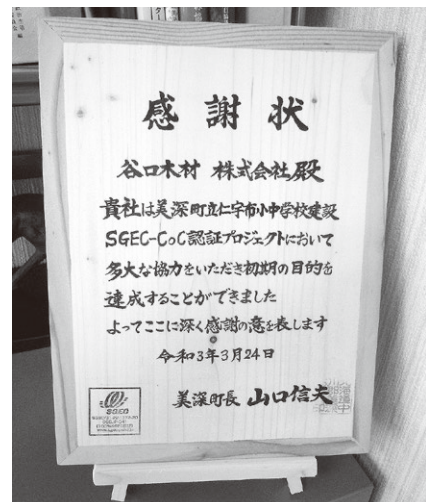 感謝状
谷口木材 株式会社殿
貴社は美深町立仁宇布小中学校建設
SGEC-CoC認証プロジェクトにおいて
多大な協力をいただき初期の目的を
達成することができました
よってここに深く感謝の意を表します
令和3年3月24日
美深町長 山口信夫
SGEC